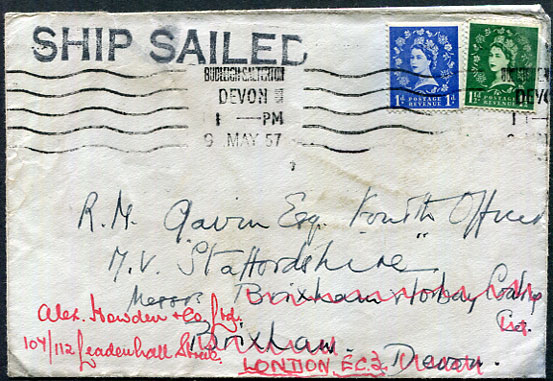 SHIP SAILED
BUDLEIGH SALTERTON
DEVON
1 — PM
9 MAY 57
1d POSTAGE REVENUE 1d
1½d POSTAGE REVENUE
DEV
R.M. Gavin Esq. Fourth Officer
M.V. "Staffordshire"
Messrs Brixham Torbay Coaling Co.
Alex. Howden & Co. Ltd.
Brixham.
104/112 Leadenhall Street
LONDON. E.C.3.
Devon.